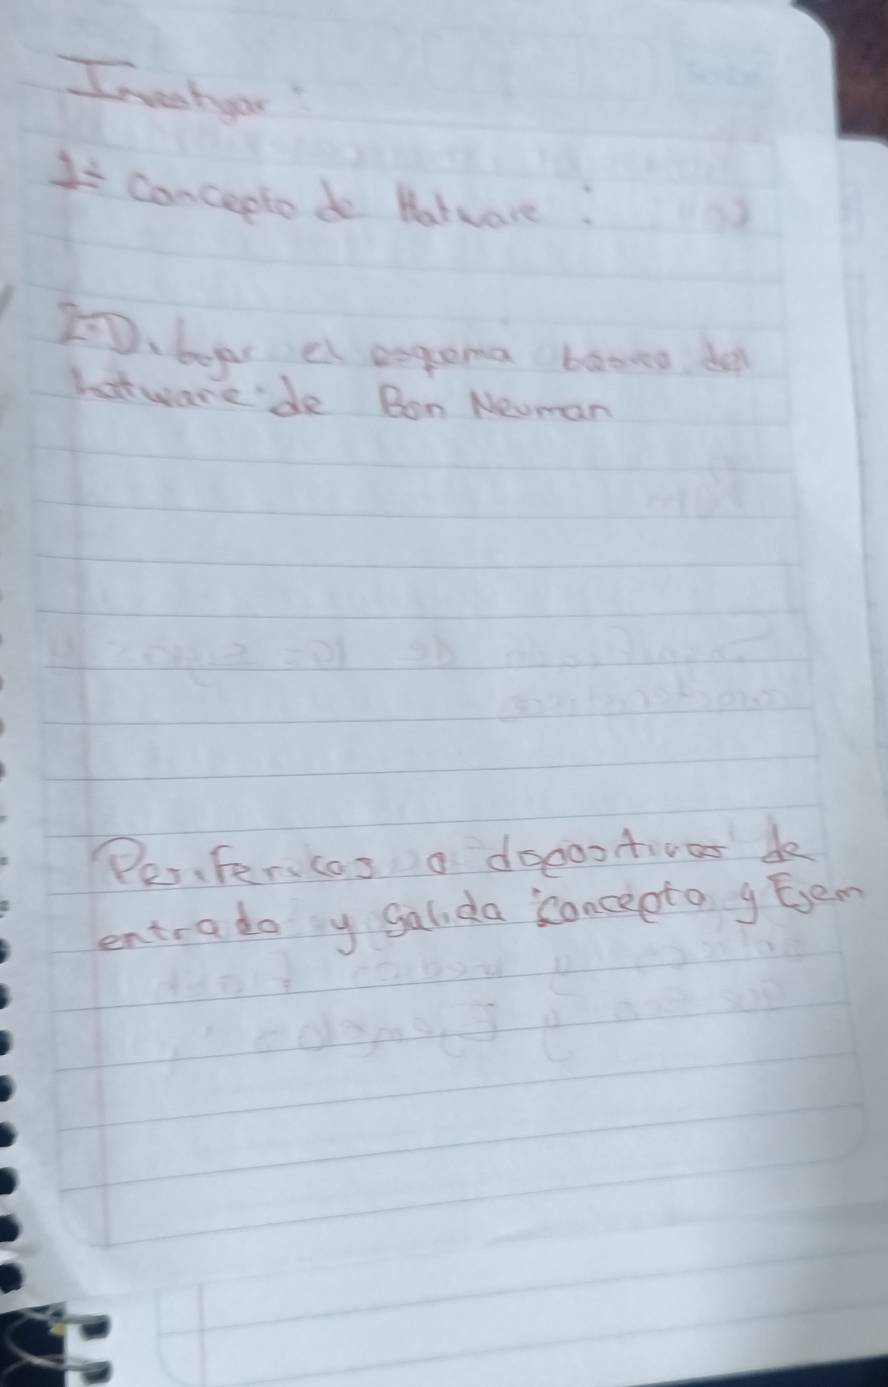 Investigar:
1- Concepto de Hatware:
2-Dibujar el esqema basico del
hatware de Bon Neuman
Perifericos o dispositivos de
entrada y salida concepto y Ejem